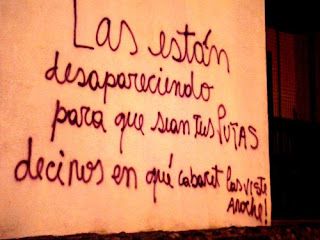 Las están
desapareciendo
para que sean tus PUTAS
decinos en qué cabaret las viste
Anoche!